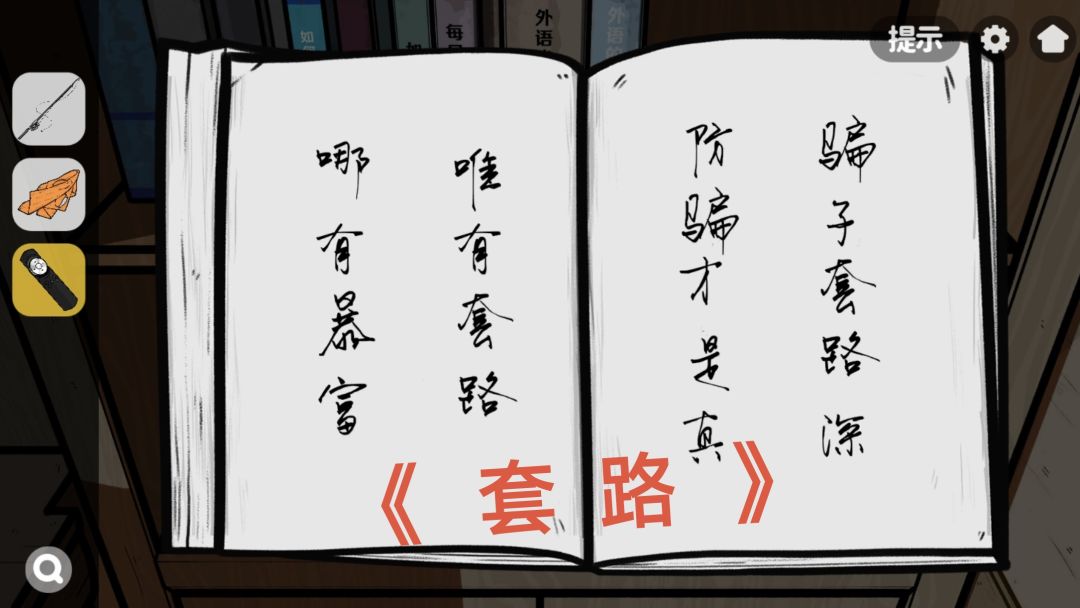 提示
骗子套路深
防骗才是真
唯有套路
哪有暴富
《套路》
外语
每
如